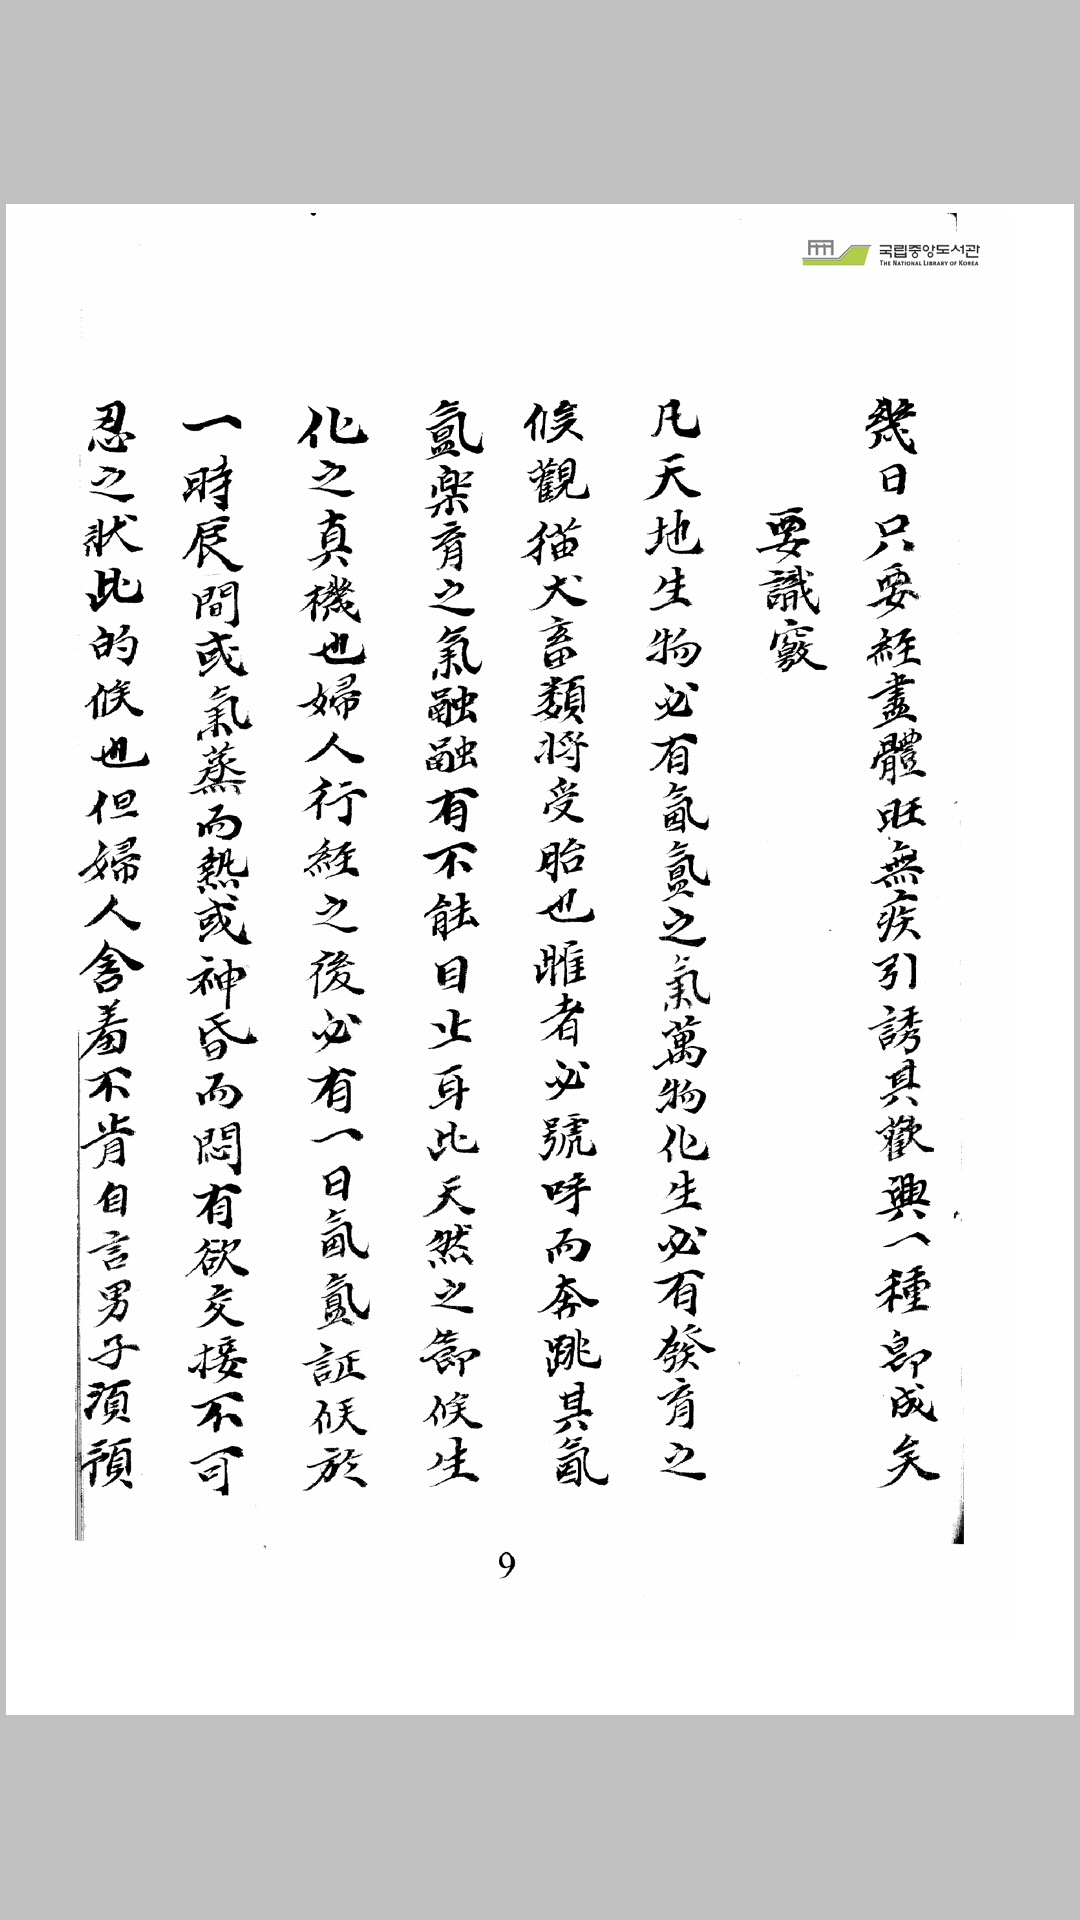 국립중앙도서관
THE NATIONAL LIBRARY OF KOREA
幾日只要経盡體旺無疾引誘其歡興一種卽成矣
要識竅
凡天地生物必有氤氳之氣萬物化生必有發育之
候觀猫犬畜類将受胎也雎者必號呼而奔跳其氤
氳樂育之氣融融有不能自止耳此天然之節候生
化之真機也婦人行経之後必有一日氤氳証候於
一時辰間或氣蒸而熱或神昏而悶有欲交接不可
忍之狀此的候也但婦人含羞不肯自言男子須預
9